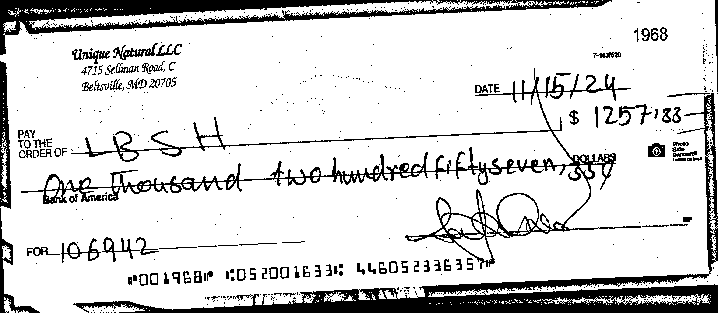 1968
Unique Natural LLC
4715 Sellman Road, C
Beltsville, MD 20705
DATE 11/15/24
PAY TO THE ORDER OF LBSH $ 1257.88
One Thousand two hundred fifty seven, DOLLARS
Bank of America
FOR 106942
⑈001968⑈ ⑆052001633⑆ 446052336357⑈